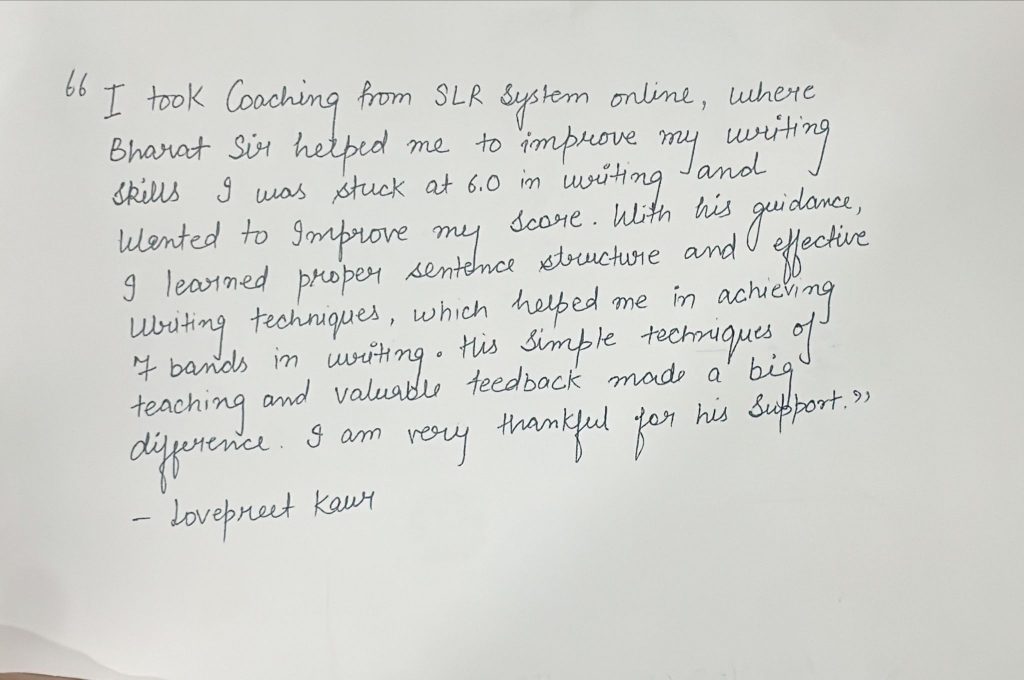 “ I took Coaching from SLR System online, where
Bharat Sir helped me to improve my writing
skills I was stuck at 6.0 in writing and
Wanted to Improve my score. With his guidance,
I learned proper sentence structure and effective
Writing techniques, which helped me in achieving
7 bands in writing. His Simple techniques of
teaching and valuable feedback made a big
difference. I am very thankful for his Support.”
- Lovepreet Kaur